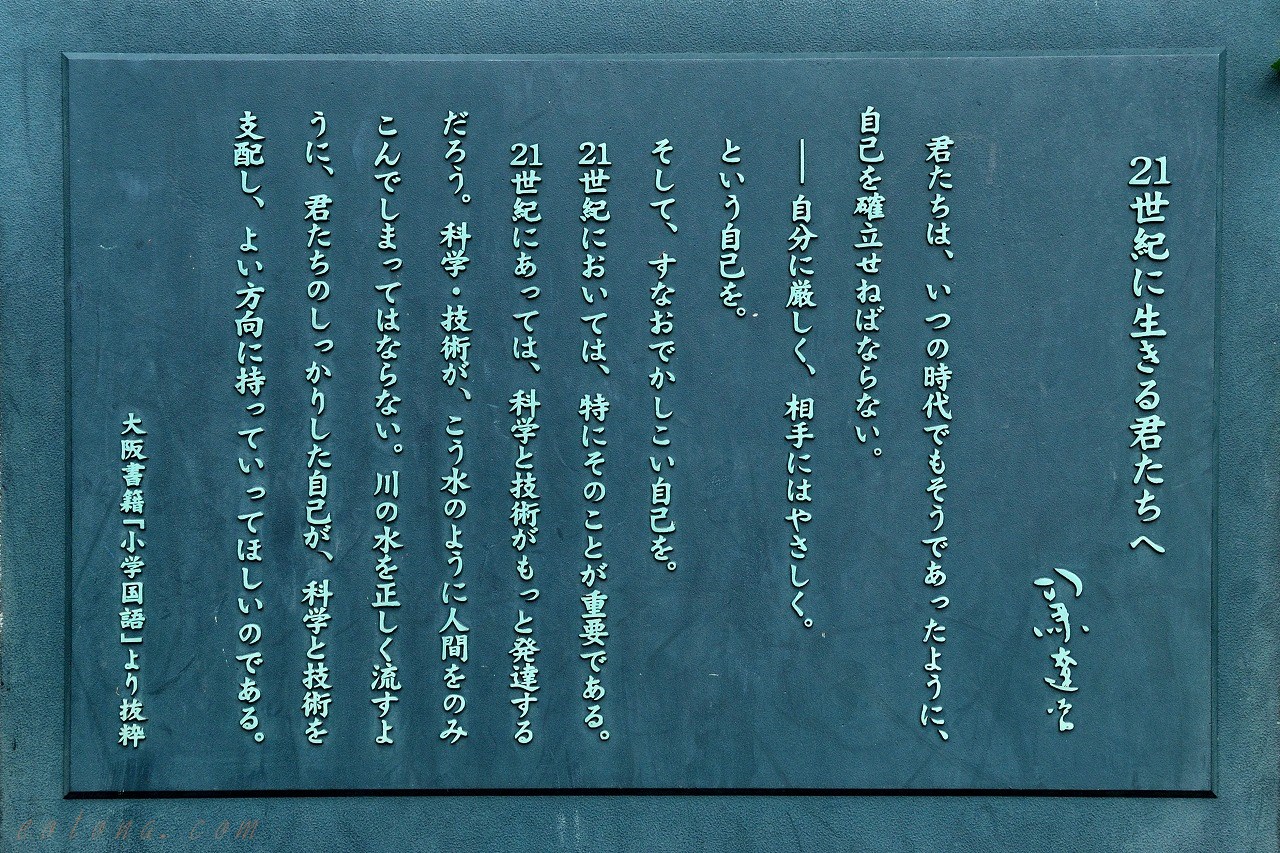 21世紀に生きる君たちへ
司馬遼太郎
君たちは、いつの時代でもそうであったように、
自己を確立せねばならない。
――自分に厳しく、相手にはやさしく。
という自己を。
そして、すなおでかしこい自己を。
21世紀においては、特にそのことが重要である。
21世紀にあっては、科学と技術がもっと発達する
だろう。科学・技術が、こう水のように人間をのみ
こんでしまってはならない。川の水を正しく流すよ
うに、君たちのしっかりした自己が、科学と技術を
支配し、よい方向に持っていってほしいのである。
大阪書籍「小学国語」より抜粋